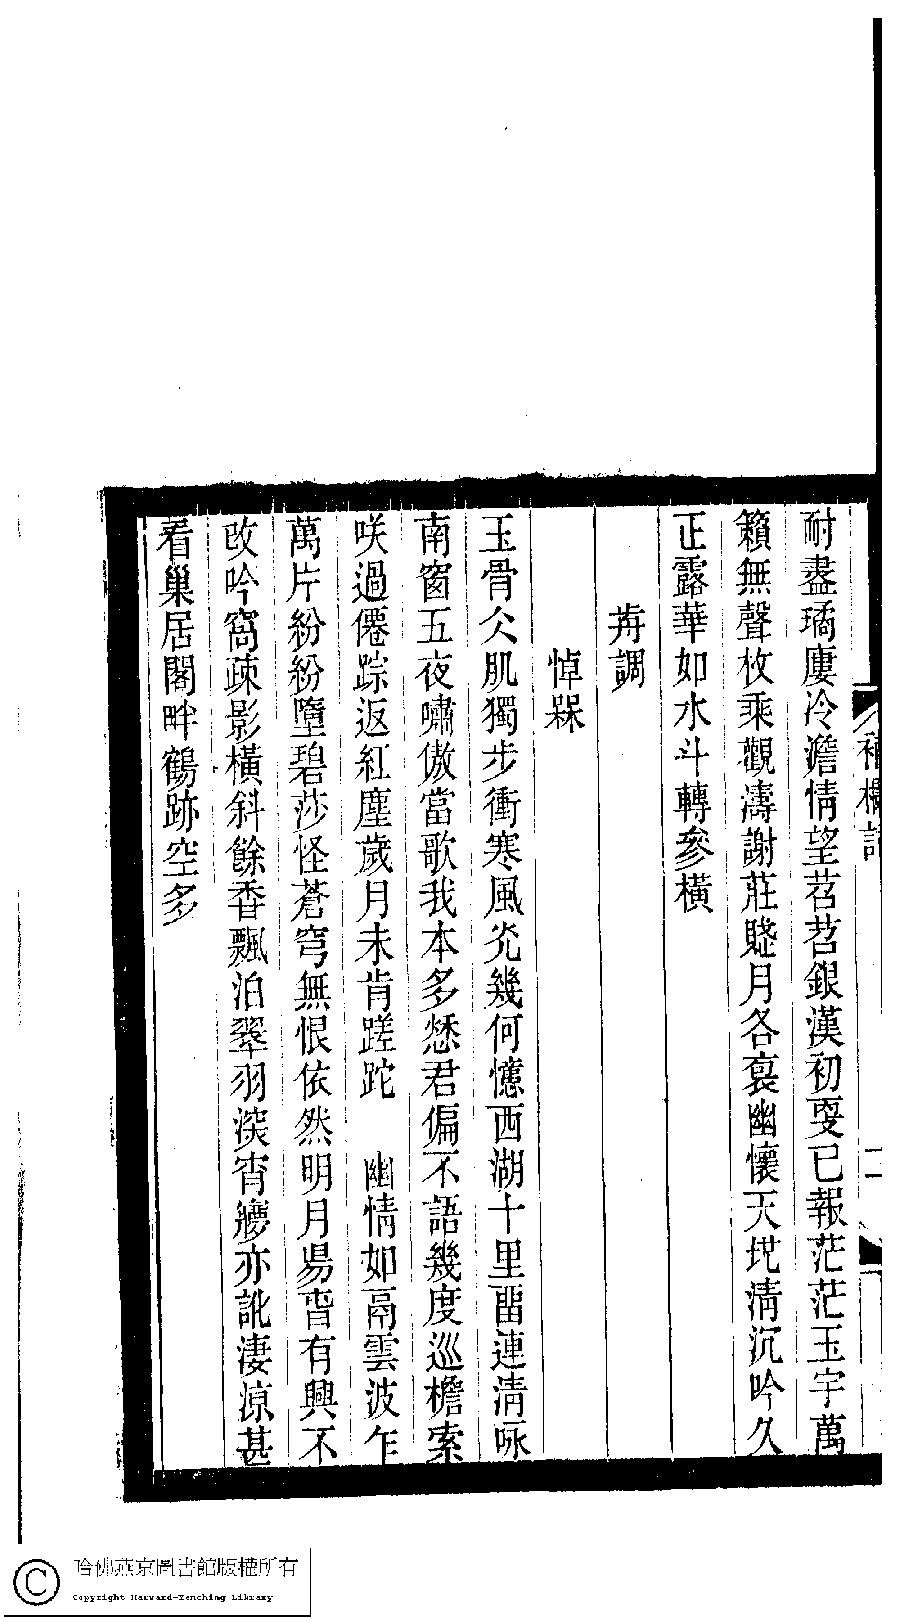 補欄詞
二
耐盡璚廔冷澹情望苕苕銀漢初更已報茫茫玉宇萬
籟無聲枚乘觀濤謝莊賤月各裒幽懷天地淸沉吟久
正露華如水斗轉參橫
歬調
悼槑
玉骨仌肌獨步衝寒風灮幾何憶西湖十里畱連淸咏
南窗五夜嘯傲當歌我本多愁君偏不語幾度巡檐索
咲過僊踪返紅塵歲月未肯蹉跎　幽情如鬲雲波乍
萬片紛紛墮碧莎怪蒼穹無恨依然明月昜旹有興不
改吟窩疎影橫斜餘香飄泊翠羽深宵㝱亦訛淒涼甚
看巢居閣畔鶴跡空多
哈佛燕京圖書館版權所有
Copyright Harvard-Yenching Library